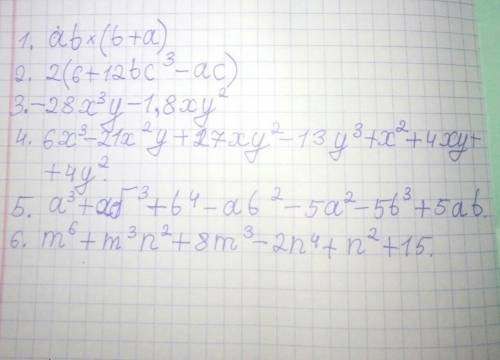 1. ab×(b+a)
2. 2(6+12bc³-ac)
3. -28x³y-1,8xy²
4. 6x³-21x²y+27xy²-13y³+x²+4xy+
+4y².
5. a³+ab³+b⁴-ab²-5a²-5b³+5ab.
6. m⁶+m³n²+8m³-2n⁴+n²+15.